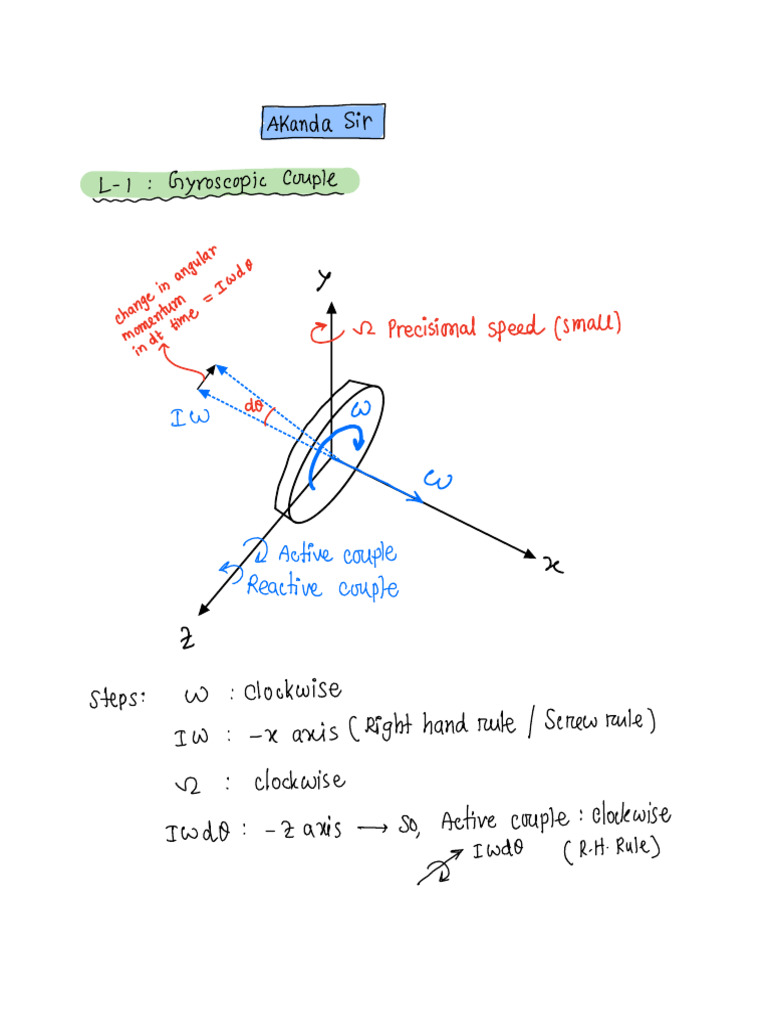 AKanda Sir
L-1 : Gyroscopic Couple
change in angular
momentum
in dt time = Iωdθ
y
Ω Precisional speed (small)
dθ
Iω
ω
ω
x
Active couple
Reactive couple
Z
Steps: ω : Clockwise
Iω : -x axis (Right hand rule / Screw rule)
Ω : clockwise
Iωdθ : -Z axis → So, Active couple : clockwise
Iωdθ (R.H. Rule)